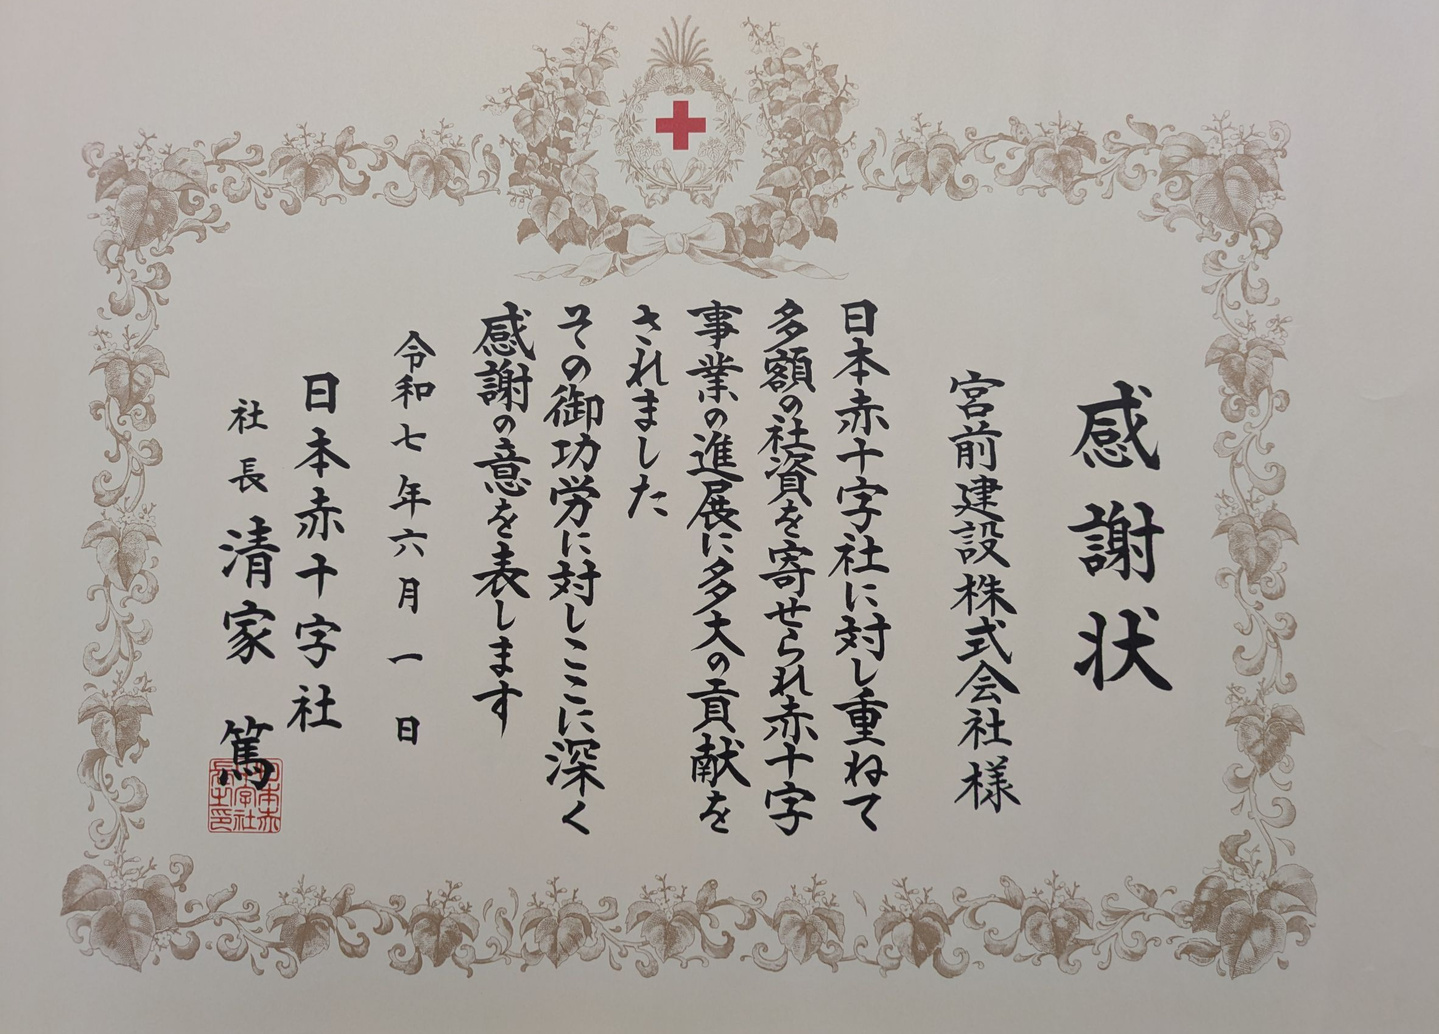 感謝状
宮前建設株式会社様
日本赤十字社に対し重ねて
多額の社資を寄せられ赤十字
事業の進展に多大の貢献を
されました
その御功労に対しここに深く
感謝の意を表します
令和七年六月一日
日本赤十字社
社長 清家 篤
日本赤
十字社
長之印